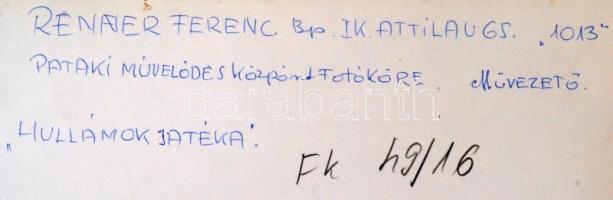 RENNER FERENC. Bp. IX. ATTILA U 65. „1013"
PATAKI MŰVELŐDÉS KÖZPONT FOTÓKÖRE. MŰVEZETŐ.
darabanth
„HULLÁMOK JATÉKA".
FK 49/16